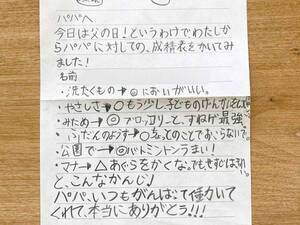 パパへ
今日は父の日!というわけでわたしか
らパパに対しての、成績表をかいてみ
ました!
名前
・洗たくもの→◎においがいい。
・やさしさ→○もう少し、子どものけんか
・みため→◎ブロッコリーと、すねが最強
・ふだんのようす→○ちょっとのことでおこらないで。
・公園で→◎バドミントンうまい!
・マナー→△あぐらをかくな。でも、そうじは
と、こんなかんじ♪
パパ、いつもがんばって働いて
くれて、本当にありがとう!!!